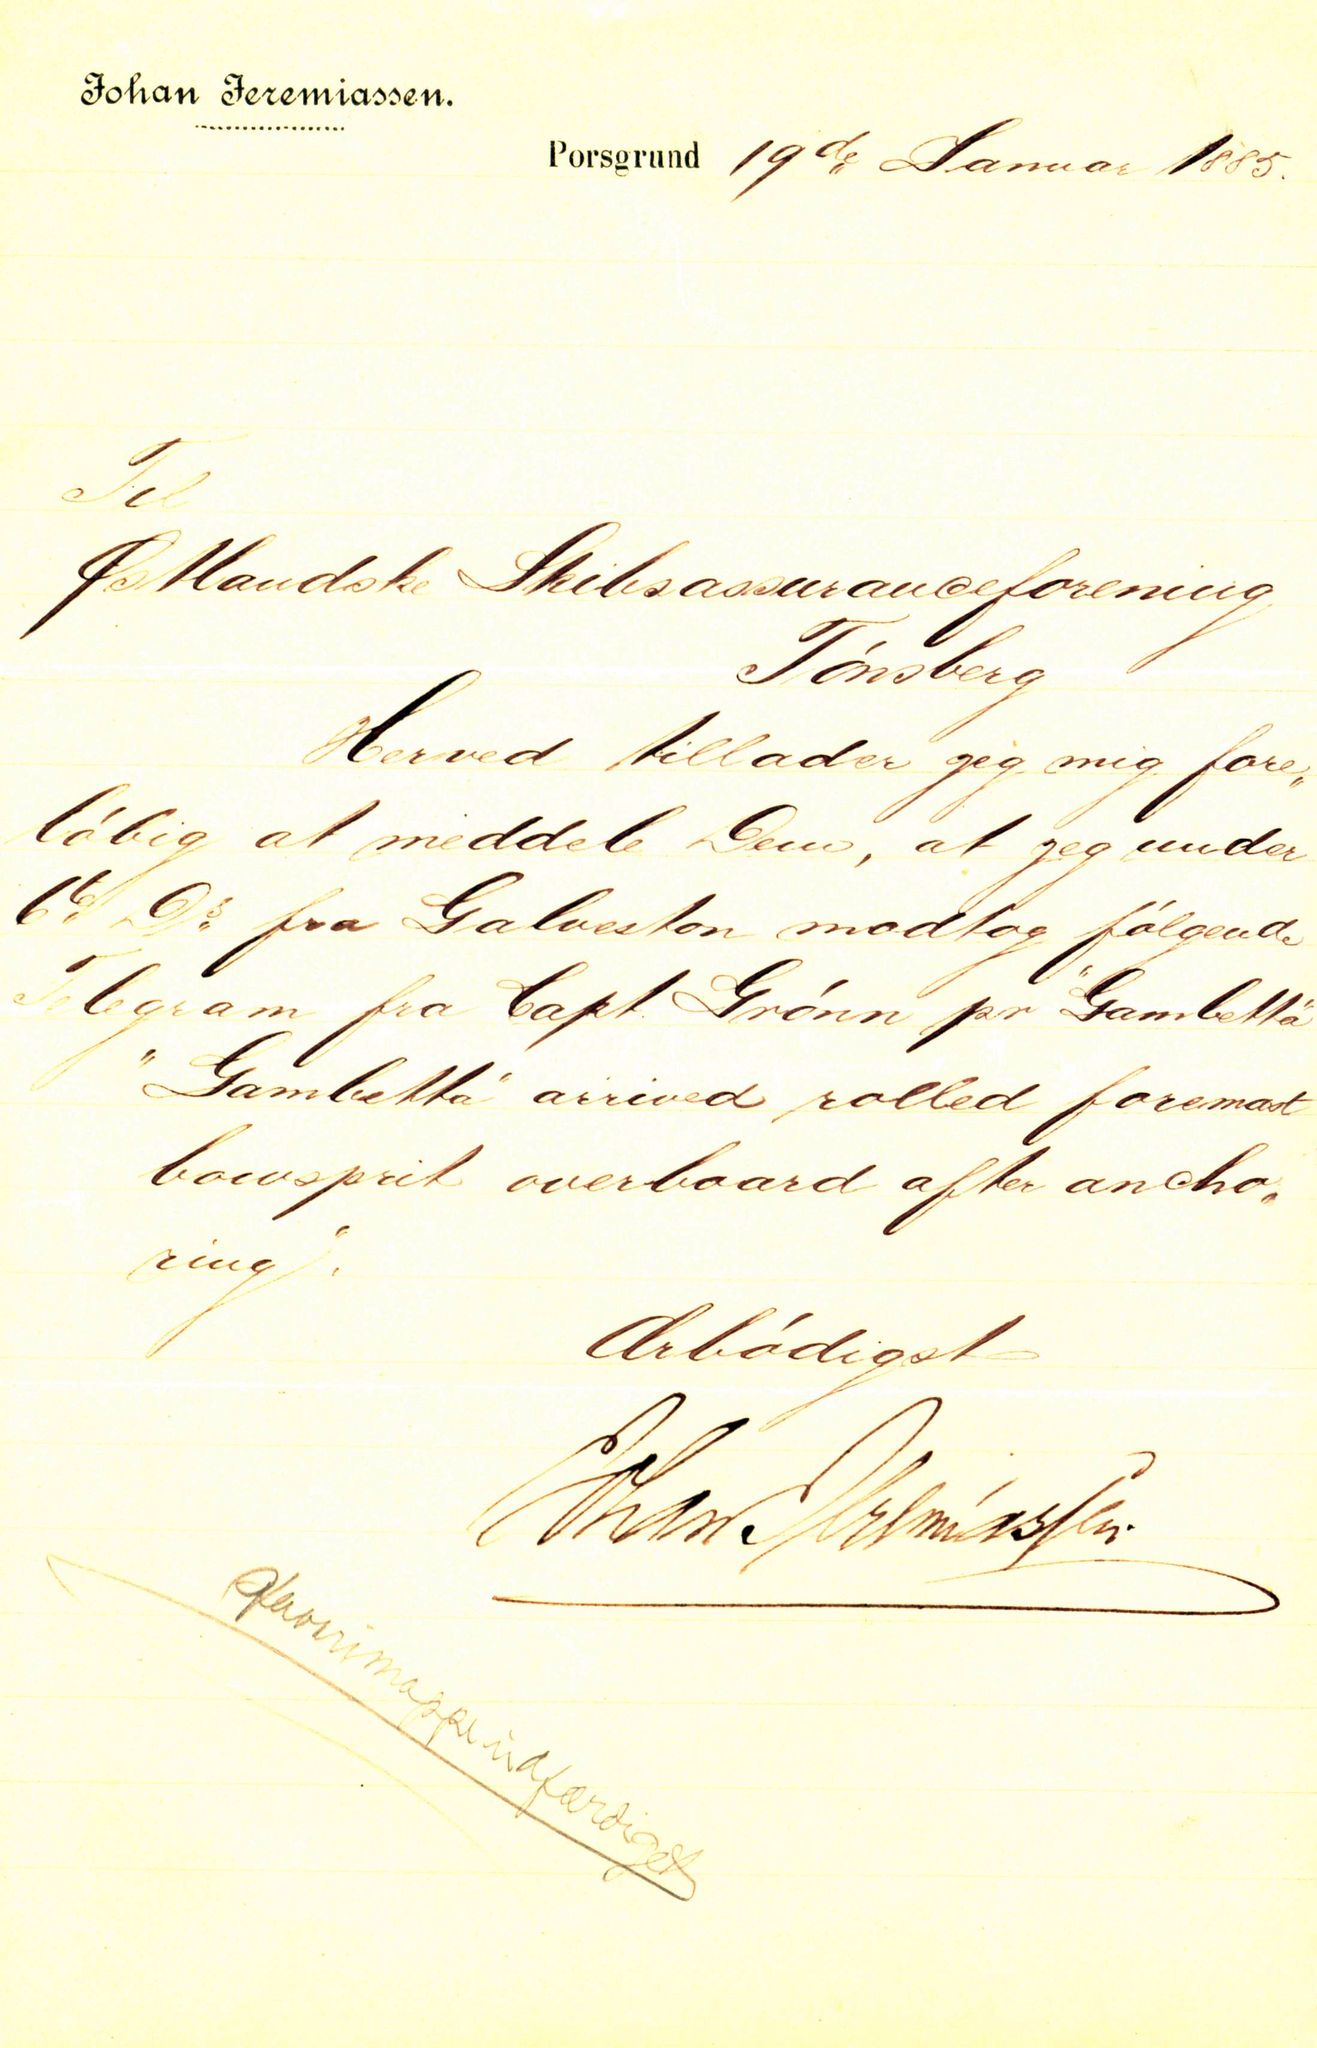 Johan Jeremiassen.
Porsgrund 19de Januar 1885.
Til
Østlandske Skibsassuranceforening
Tónsberg
Herved tillader jeg mig fore„
lóbig at meddele Dem, at jeg under
6te Ds. fra Galveston modtog fólgende
Telegram fra Capt. Grónn pr "Gambetta"
"Gambetta" arrived rolled foremast
bowsprit overboard after ancho„
ring".
Ærbódigst
Johan Jeremiassen.
Havarimappe udfærdiget